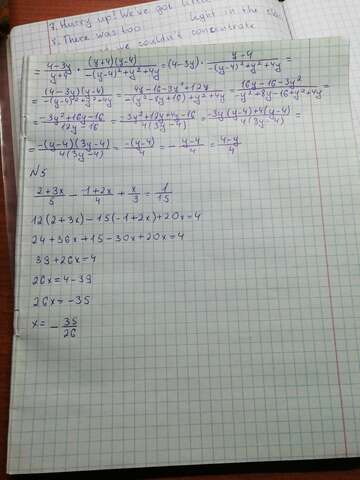 7. Hurry up! We've got
8. There was too light in the
we couldn't concentrate
= (4-3y)/(y+4) · ((y+4)(y-4))/(-(y-4)²+y²+4y) = (4-3y) · (y-4)/(-(y-4)²+y²+4y) =
= ((4-3y)(y-4))/(-(y-4)²+y²+4y) = (4y-16-3y²+12y)/(-(y²-8y+16)+y²+4y) = (16y-16-3y²)/(-y²+8y-16+y²+4y) =
= (-3y²+16y-16)/(12y-16) = (-3y²+12y+4y-16)/(4(3y-4)) = (-3y(y-4)+4(y-4))/(4(3y-4)) =
= (-(y-4)(3y-4))/(4(3y-4)) = (-(y-4))/4 = -(y-4)/4 = (4-y)/4
N5
(2+3x)/5 - (-1+2x)/4 + x/3 = 1/15
12(2+3x)-15(-1+2x)+20x=4
24+36x+15-30x+20x=4
39+26x=4
26x=4-39
26x=-35
x= -35/26